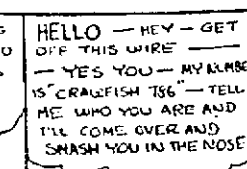 HELLO — HEY — GET
OFF THIS WIRE —
— YES YOU — MY NUMBE
IS "CRAWFISH 786" — TELL
ME WHO YOU ARE AND
I'LL COME OVER AND
SMASH YOU IN THE NOSE